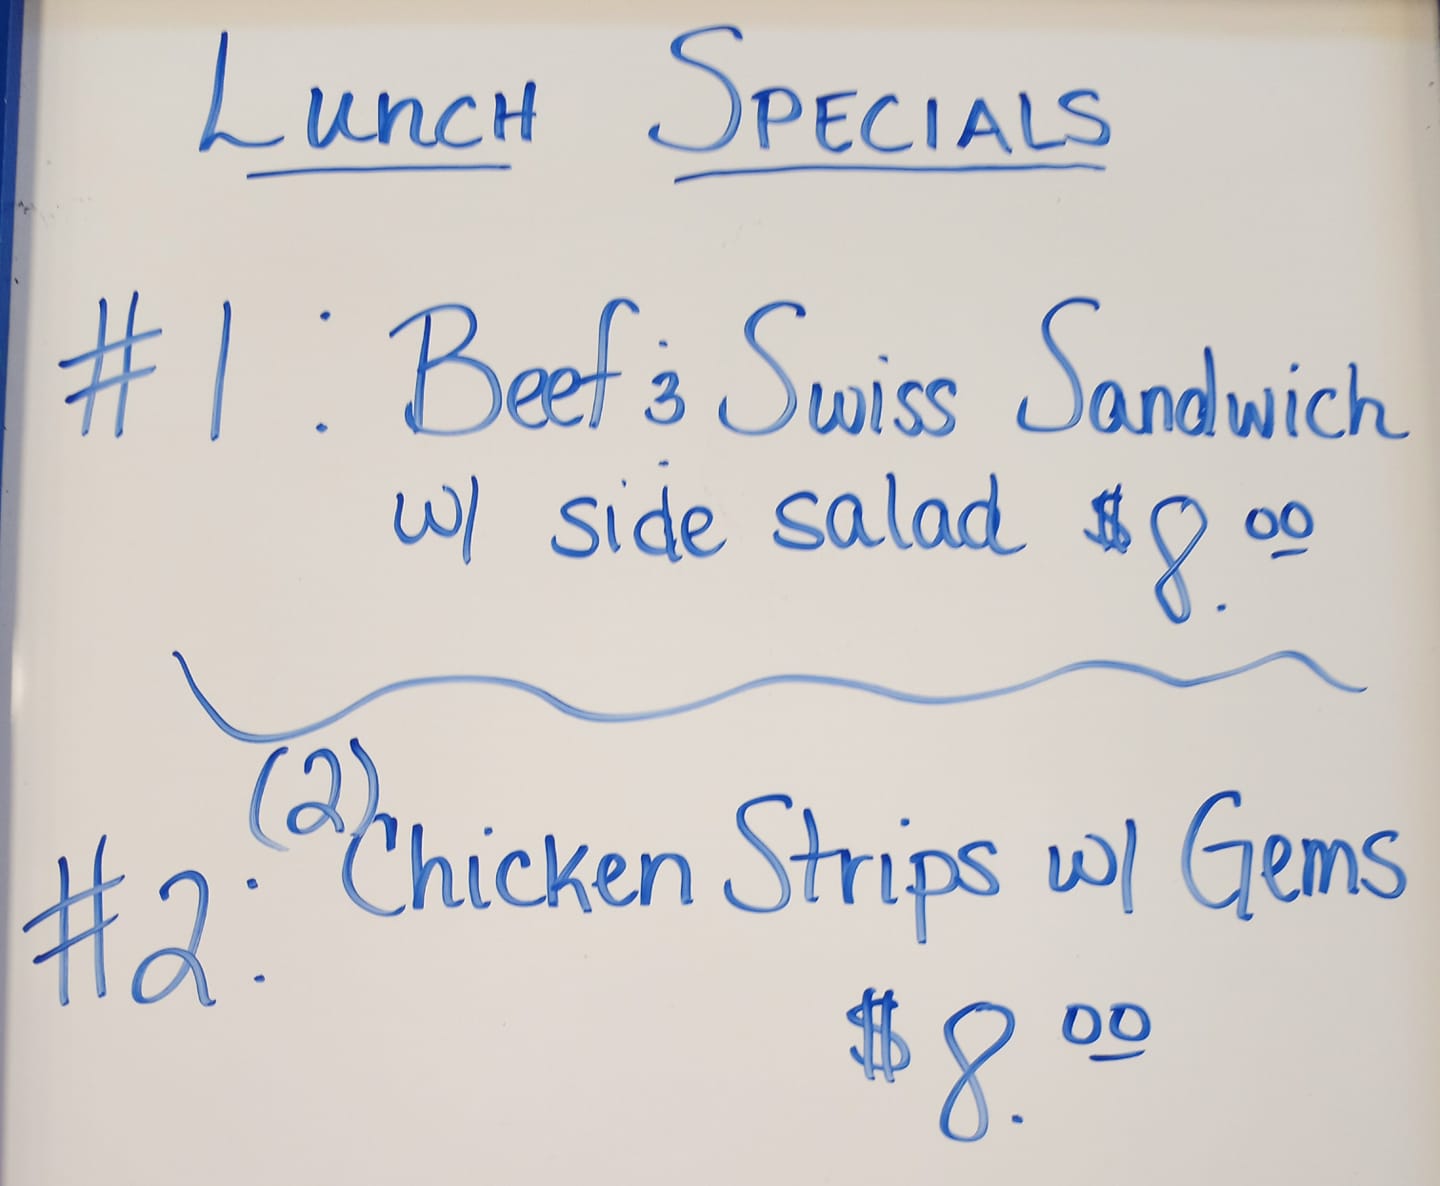 Lunch Specials
#1: Beef & Swiss Sandwich
w/ side salad $8.00
#2: (2) Chicken Strips w/ Gems
$8.00